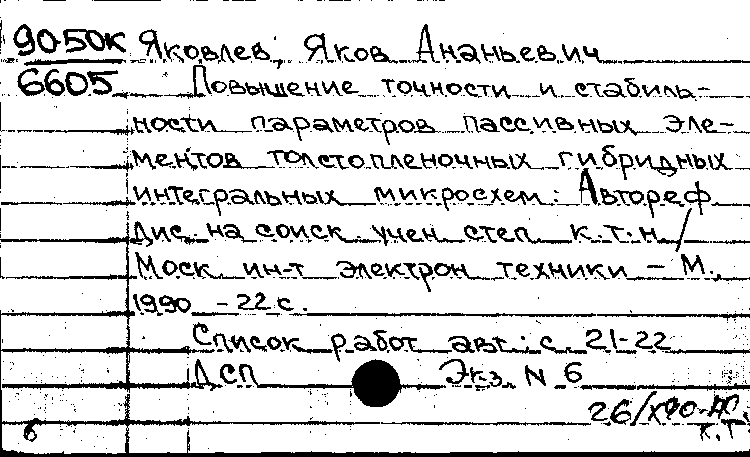 90-50к Яковлев, Яков Ананьевич
6605 Повышение точности и стабиль-
ности параметров пассивных эле-
ментов толстопленочных гибридных
интегральных микросхем: Автореф.
дис. на соиск. учен. степ. к.т.н. /
Моск. ин-т электрон. техники – М.,
1990 – 22 с.
Список работ авт.: с. 21-22
ДСП Экз. N 6
26/X90-
6 к.т